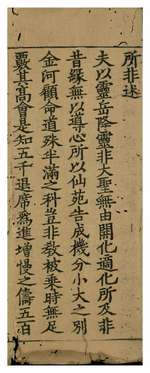 所非述
夫以靈岳降靈非大聖無由開化適化所及非
昔緣無以導心所以仙苑告成機分小大之別
金河顧命道殊半滿之科豈非教被乘時無足
覈其高會是知五千退席爲進增慢之儔五百